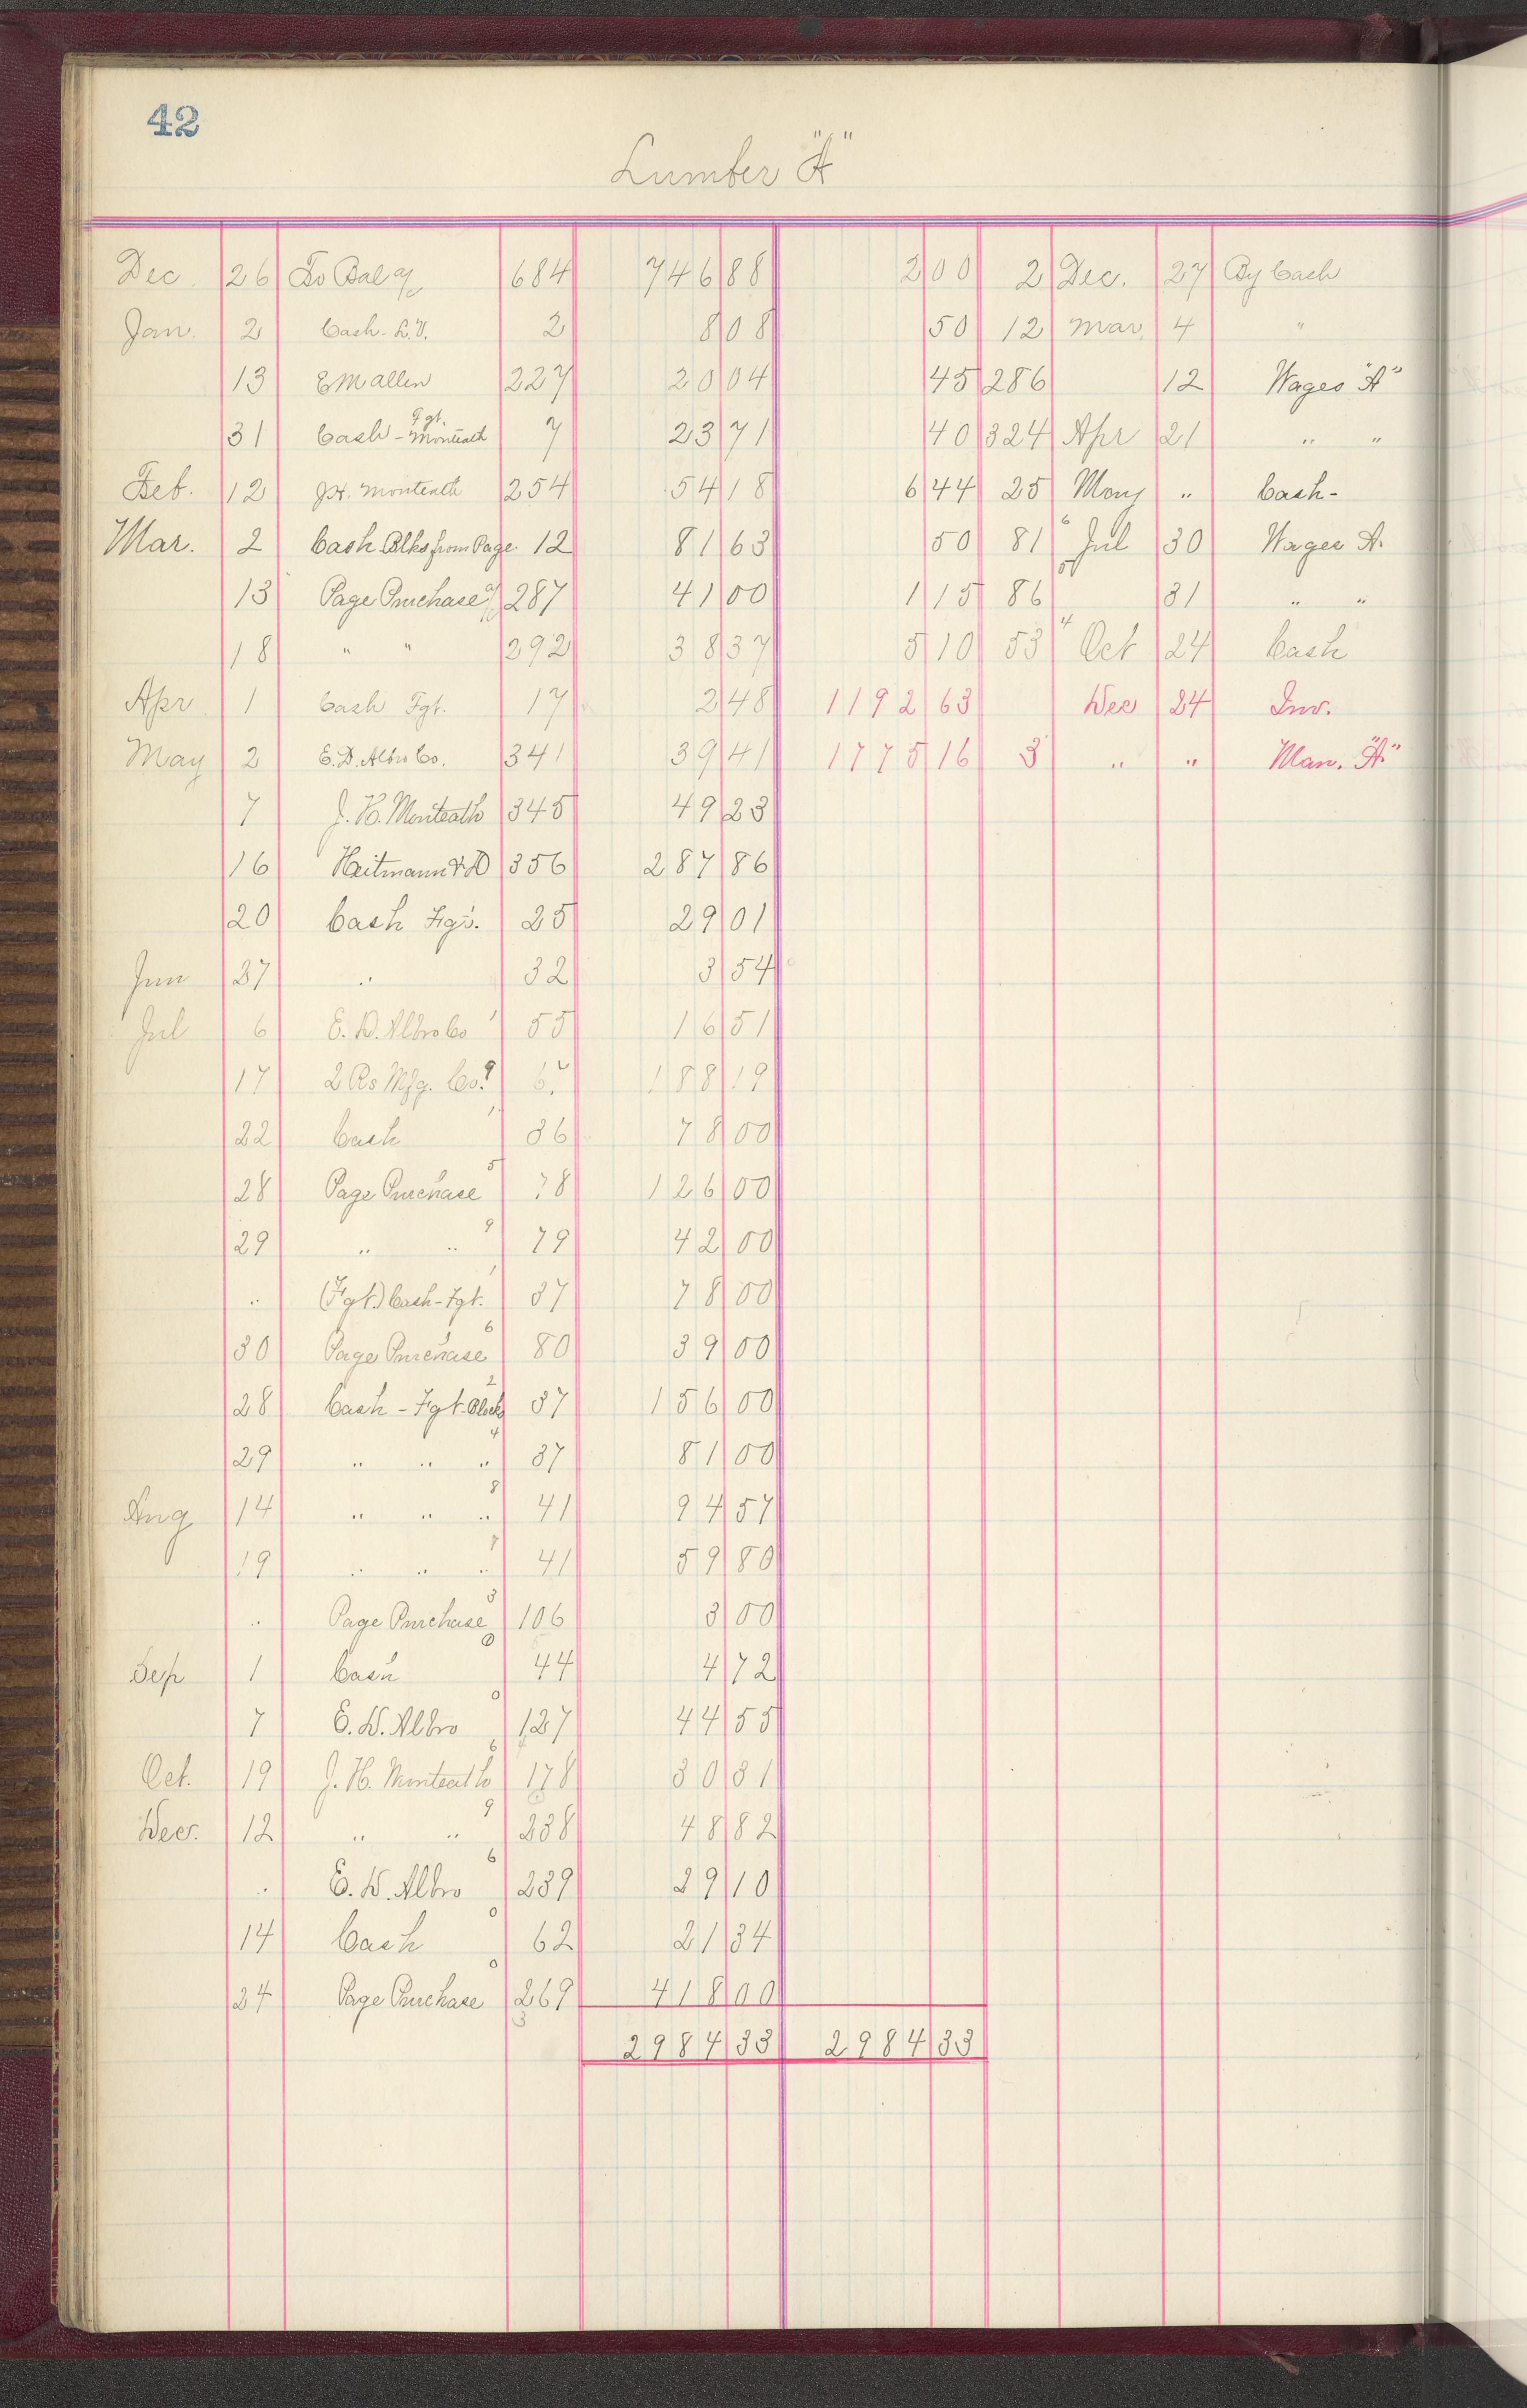 42
Lumber "A"
Dec. 26 To Bal 684 746 88 2 00 2 Dec. 27 By Cash
Jan. 2 Cash - L.V. 2 8 08 50 12 Mar. 4 "
13 E M Allen 227 20 04 45 286 12 Wages "A"
31 Cash - Fgt. Monteath 7 23 71 40 324 Apr 21 " "
Feb. 12 J.H. Monteath 254 54 18 6 44 25 " Cash -
Mar. 2 Cash Blks from Page 12 81 63 50 81 Jul 30 Wages A.
13 Page Purchase 287 41 00 1 15 86 31 " "
18 " " 292 38 37 5 10 53 Oct 24 Cash
Apr 1 Cash Fgt. 17 2 48 1192 63 Dec 24 Inv.
May 2 E.D. Albro Co. 341 39 41 1775 16 3 " " Man. "A"
7 J.H. Monteath 345 49 23
16 Heitmann 356 287 86
20 Cash Fgt. 25 29 01
Jun 27 " 32 3 54
Jul 6 E.D. Albro Co 55 16 51
17 Mfg. Co. 188 19
22 Cash 36 78 00
28 Page Purchase 78 126 00
29 " " 79 42 00
" (Fgt.) Cash - Fgt. 37 78 00
30 Page Purchase 80 39 00
28 Cash - Fgt. Blocks 37 156 00
29 " " " 37 81 00
Aug 14 " " " 41 94 57
19 " " " 41 59 80
" Page Purchase 106 3 00
Sep 1 Cash 44 4 72
7 E.D. Albro 127 44 55
Oct. 19 J.H. Monteath 178 30 31
Dec. 12 " " 238 48 82
" E.D. Albro 239 29 10
14 Cash 62 21 34
24 Page Purchase 269 418 00
2984 33 2984 33